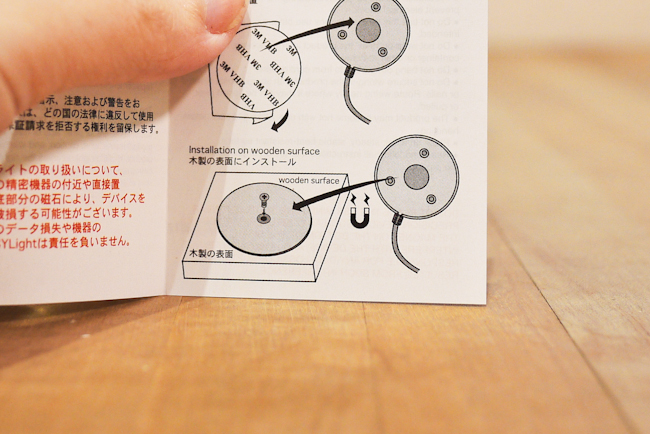 3M VHB
3M
VHB 3M
3M VHB
3M VHB
VHB
示、注意および警告をお
、どの国の法律に違反して使用
証請求を拒否する権利を留保します。
イトの取り扱いについて、
精密機器の付近や直接置
底部分の磁石により、デバイスを
破損する可能性がございます。
のデータ損失や機器の
YLightは責任を負いません。
Installation on wooden surface
木製の表面にインストール
wooden surface
木製の表面